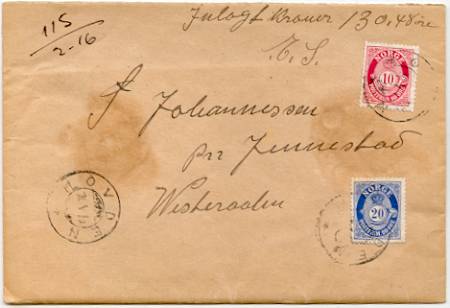 115
2-16
Inlagt Kroner 130,48 øre
T. S.
NORGE
10
J Johannessen
pr Jennestad
Westeraalen
HOVDEN
NORGE
20